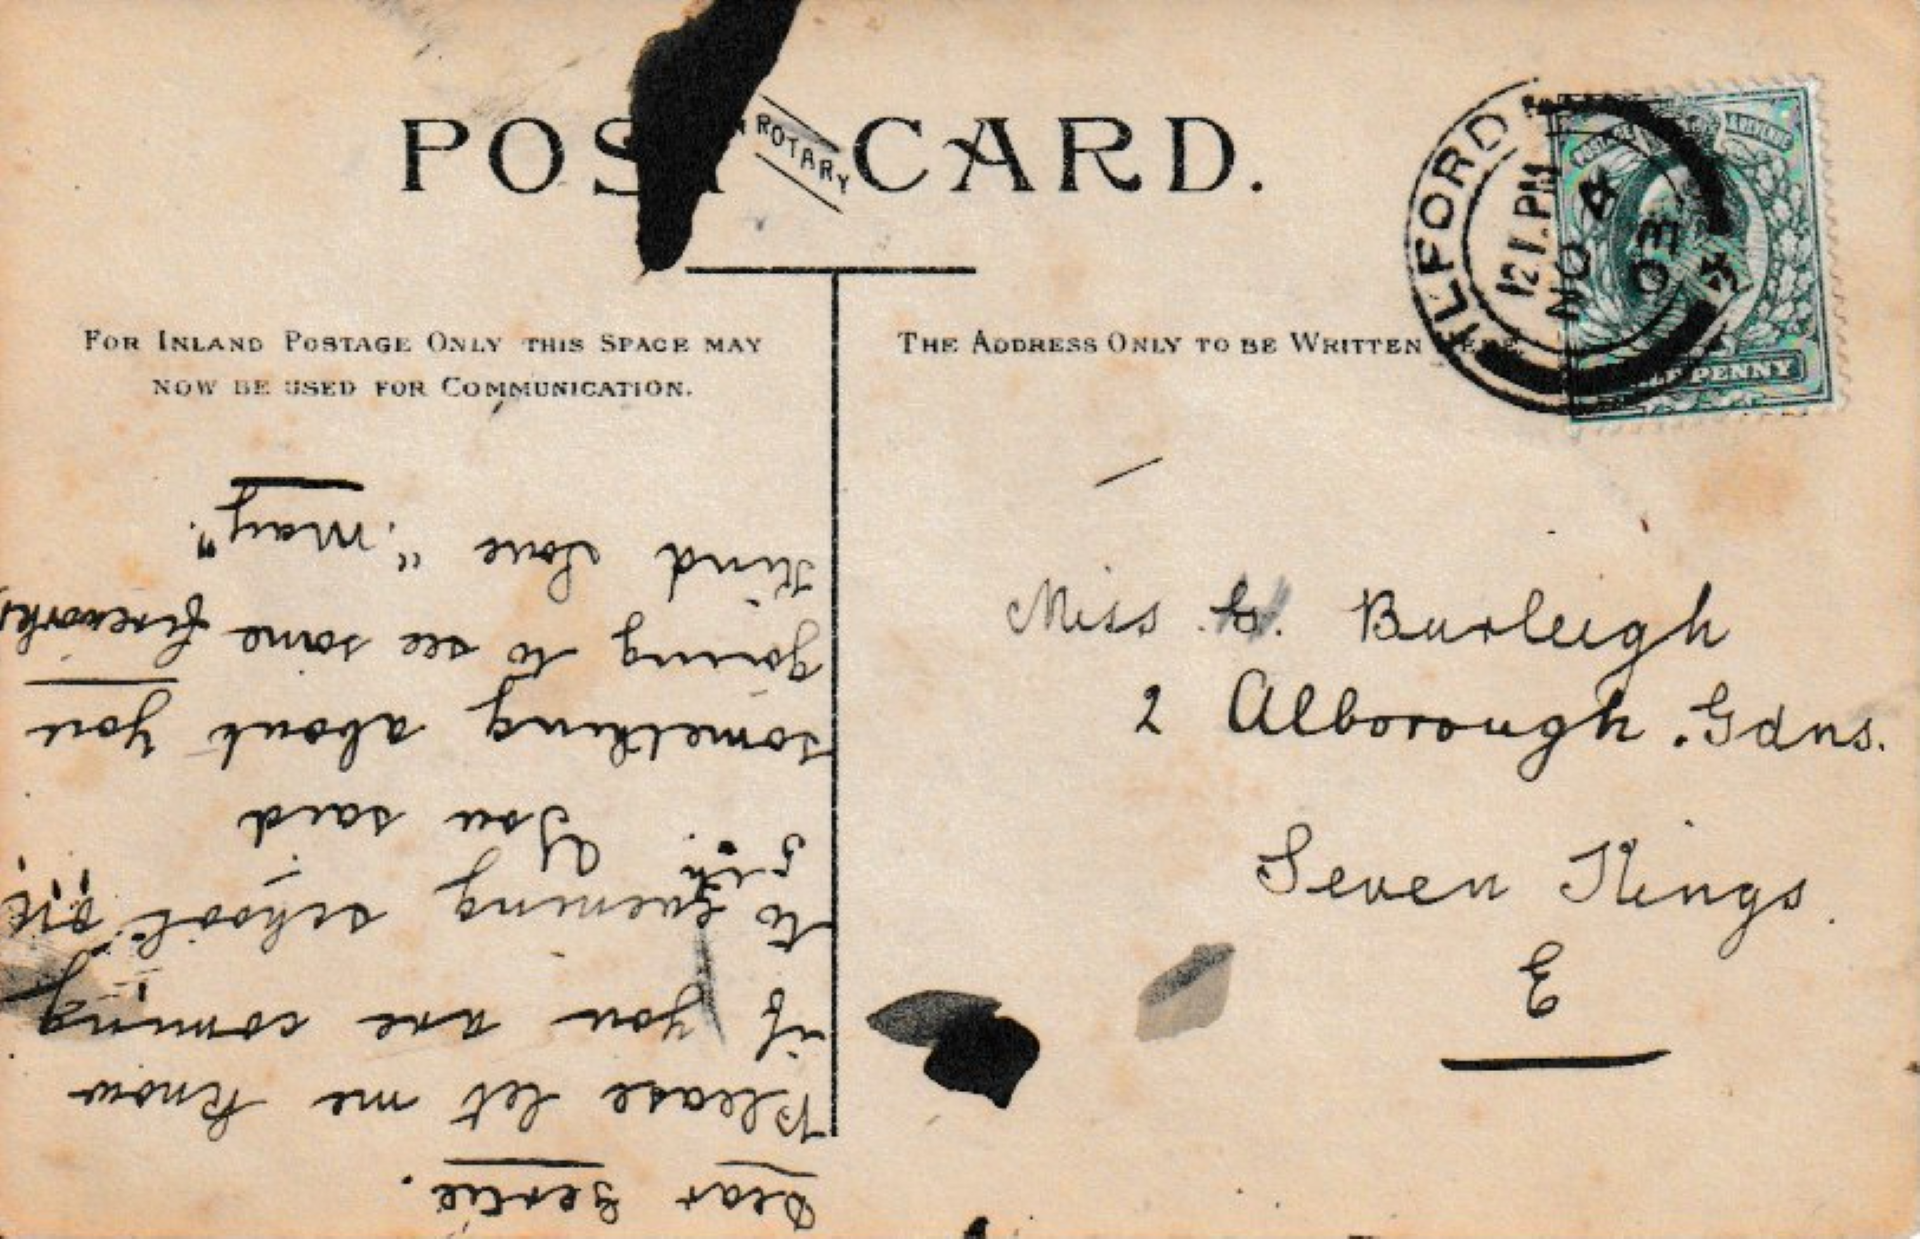 POST CARD.
ROTARY
ILFORD
12 1. PM
NO 4
03
POSTAGE & REVENUE
HALF PENNY
FOR INLAND POSTAGE ONLY THIS SPACE MAY
NOW BE USED FOR COMMUNICATION.
THE ADDRESS ONLY TO BE WRITTEN HERE.
Dear Gertie.
Please let me know
if you are coming
to evening school on
5th. You said
something about you
going to see some fireworks,
Kind Love "May".
Miss. G. Burleigh
2 Alborough. Gdns.
Seven Kings.
E